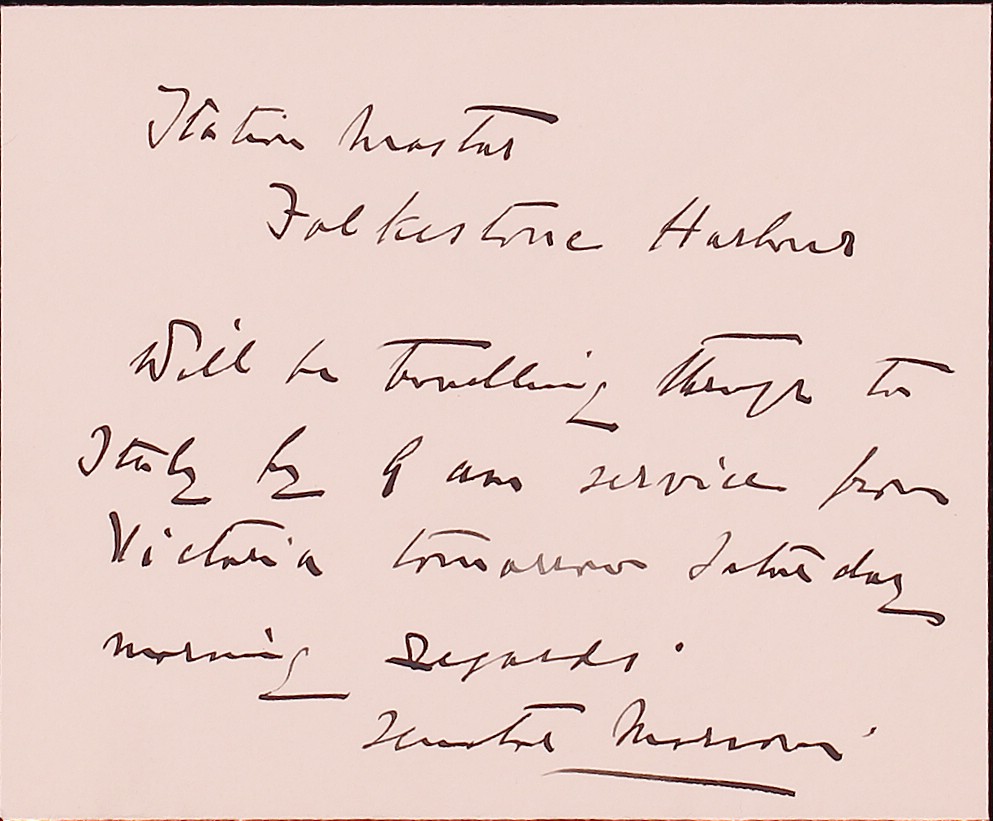 Station Master
Folkestone Harbour
Will be travelling through to
Italy by 9 am service from
Victoria tomorrow Saturday
morning Regards.
Senator Marconi